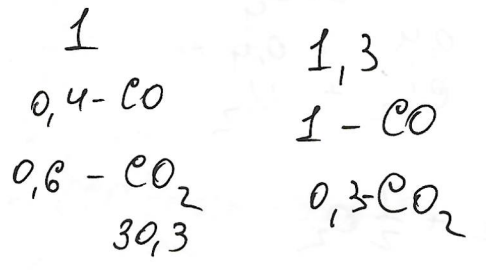 1
0,4 - CO
0,6 - CO₂
30,3
1,3
1 - CO
0,3 - CO₂